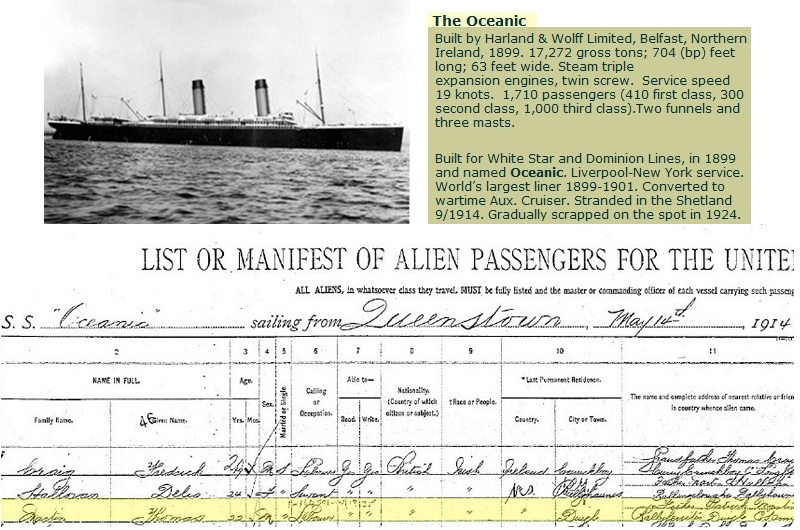 The Oceanic
Built by Harland & Wolff Limited, Belfast, Northern
Ireland, 1899. 17,272 gross tons; 704 (bp) feet
long; 63 feet wide. Steam triple
expansion engines, twin screw. Service speed
19 knots. 1,710 passengers (410 first class, 300
second class, 1,000 third class).Two funnels and
three masts.
Built for White Star and Dominion Lines, in 1899
and named Oceanic. Liverpool-New York service.
World's largest liner 1899-1901. Converted to
wartime Aux. Cruiser. Stranded in the Shetland
9/1914. Gradually scrapped on the spot in 1924.
LIST OR MANIFEST OF ALIEN PASSENGERS FOR THE UNITE
ALL ALIENS, in whatsoever class they travel, MUST be fully listed and the master or commanding officer of each vessel carrying such passeng
S. S. "Oceanic" sailing from Queenstown, May 14th, 1914
2 3 4 5 6 7 8 9 10 11
NAME IN FULL. Age. Sex. Married or Single. Calling or Occupation. Able to— Nationality. (Country of which citizen or subject.) †Race or People. *Last Permanent Residence. The name and complete address of nearest relative or frien in country whence alien came.
Family Name. Given Name. Yrs. Mos. Read. Write. Country. City or Town.
Craig Frederick M S Labourer Yes Yes British Irish Ireland Grandfather Thomas
Halloran Delia 24 F Servant " " " " Ballyhaunes
Thomas 22 M " " " " "